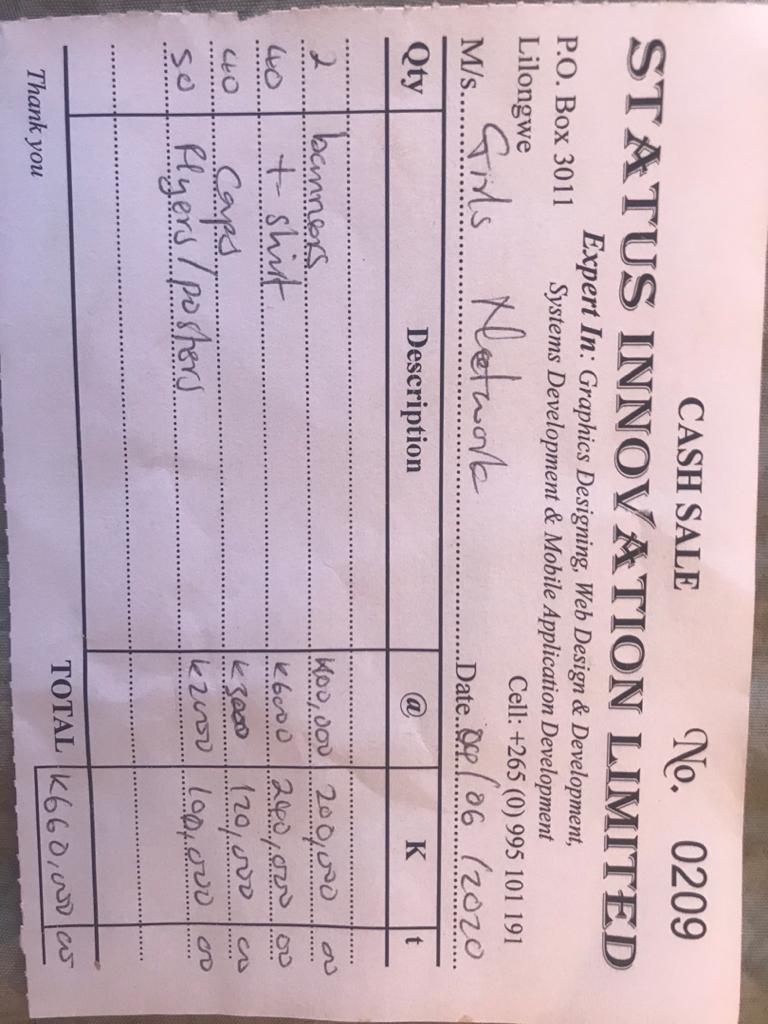 CASH SALE No. 0209
STATUS INNOVATION LIMITED
Expert In: Graphics Designing, Web Design & Development,
Systems Development & Mobile Application Development
P.O. Box 3011
Lilongwe Cell: +265 (0) 995 101 191
M/s. Girls Network Date /06/2020
Qty Description @ K t
2 banners K100,000 200,000 00
40 t-shirt K6000 240,000 00
40 Caps K3000 120,000 00
50 Flyers/posters K2000 100,000 00
TOTAL K660,000 00
Thank you